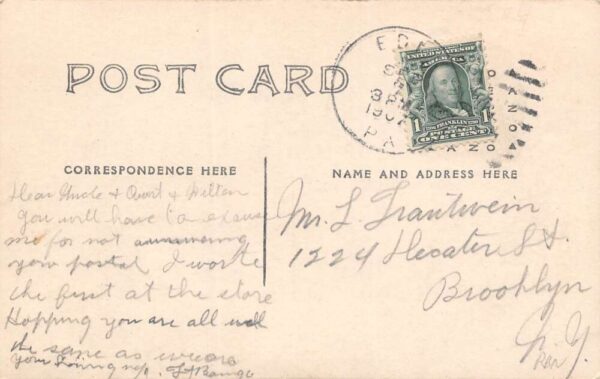 POST CARD
UNITED STATES OF AMERICA
1 FRANKLIN 1
POSTAGE
ONE CENT
PA
CORRESPONDENCE HERE
NAME AND ADDRESS HERE
Dear Uncle &
you will have to excuse
me for not answering
your postal I wrote
the first at the store
Hopping you are all well
the same as we are
Your
Mr. L. Trautwein
1224 St.
Brooklyn
N.Y.